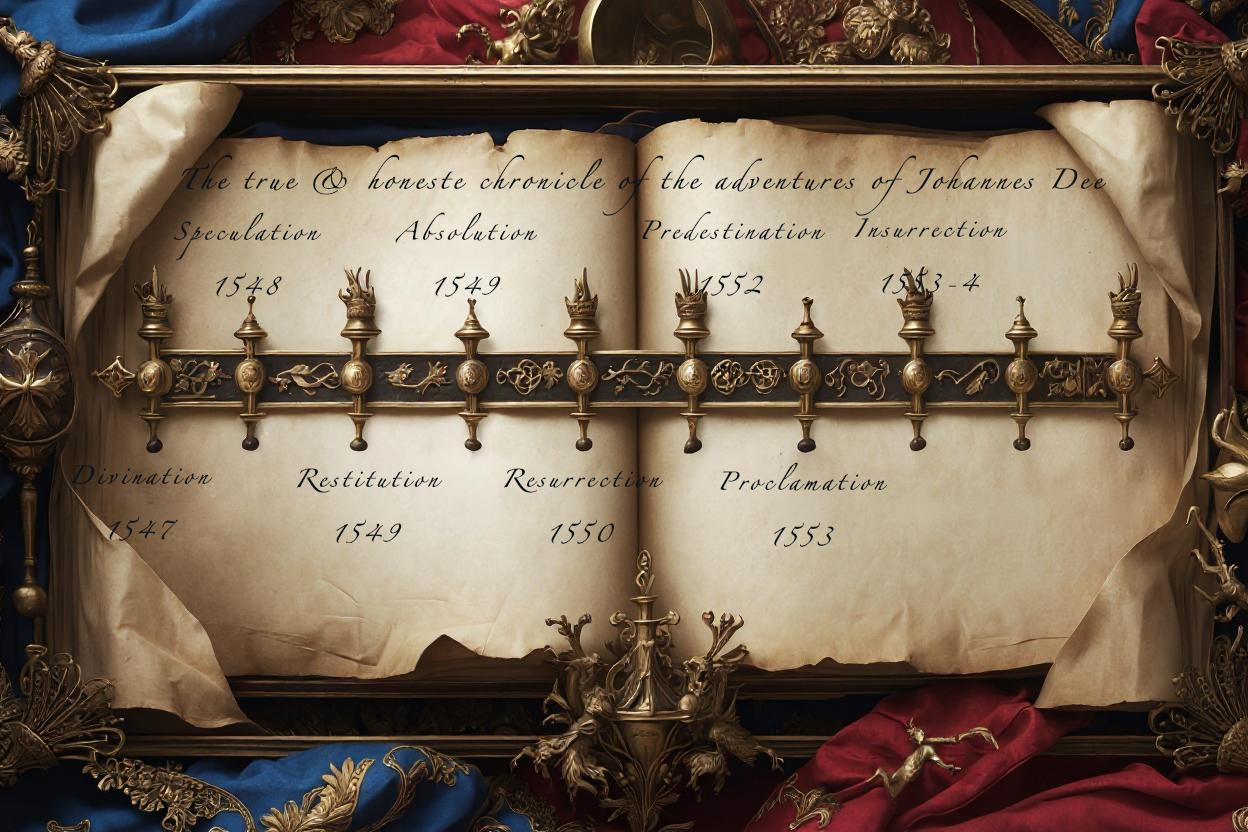 The true & honeste chronicle of the adventures of Johannes Dee
Speculation Absolution Predestination Insurrection
1548 1549 1552 1553-4
Divination Restitution Resurrection Proclamation
1547 1549 1550 1553